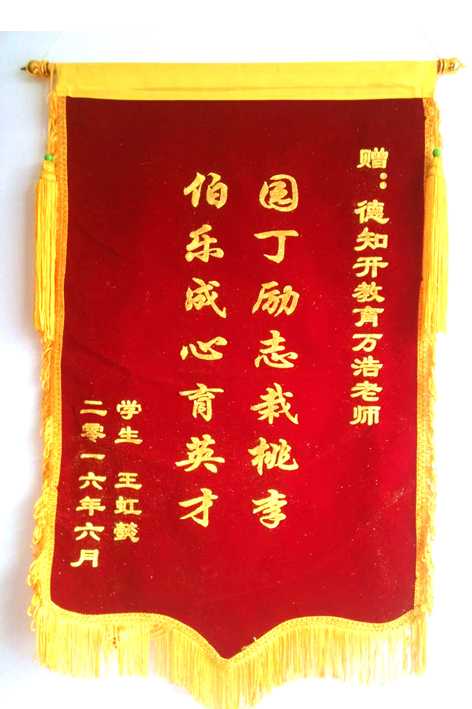 赠：德知开教育万浩老师
园丁励志栽桃李
伯乐成心育英才
学生 王虹懿
二零一六年六月